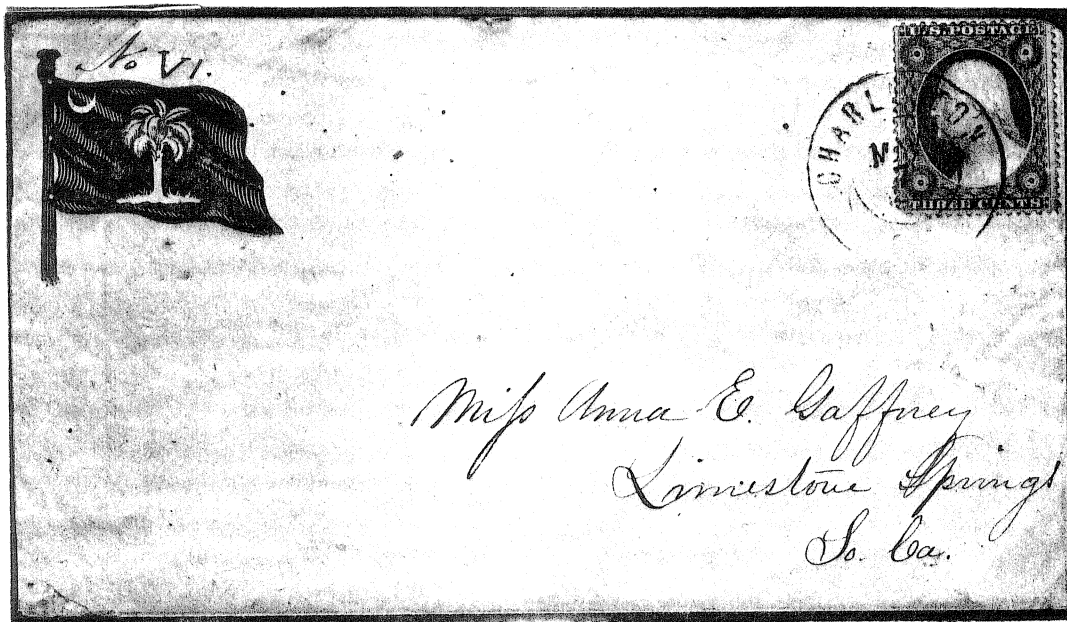 No VI.
U.S. POSTAGE
THREE CENTS
CHARL
Miss Anna E. Gaffney
Limestone Springs
So. Ca.